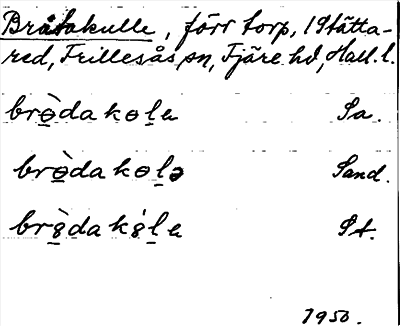 Bråtakulle, förr torp, 1 Stätta-
red, Frillesås sn, Fjäre hd, Hall. l.
brò̱dakoḻa Sa.
brò̱dakoḻə Sand.
brò̱dakóḻa St.
1950.